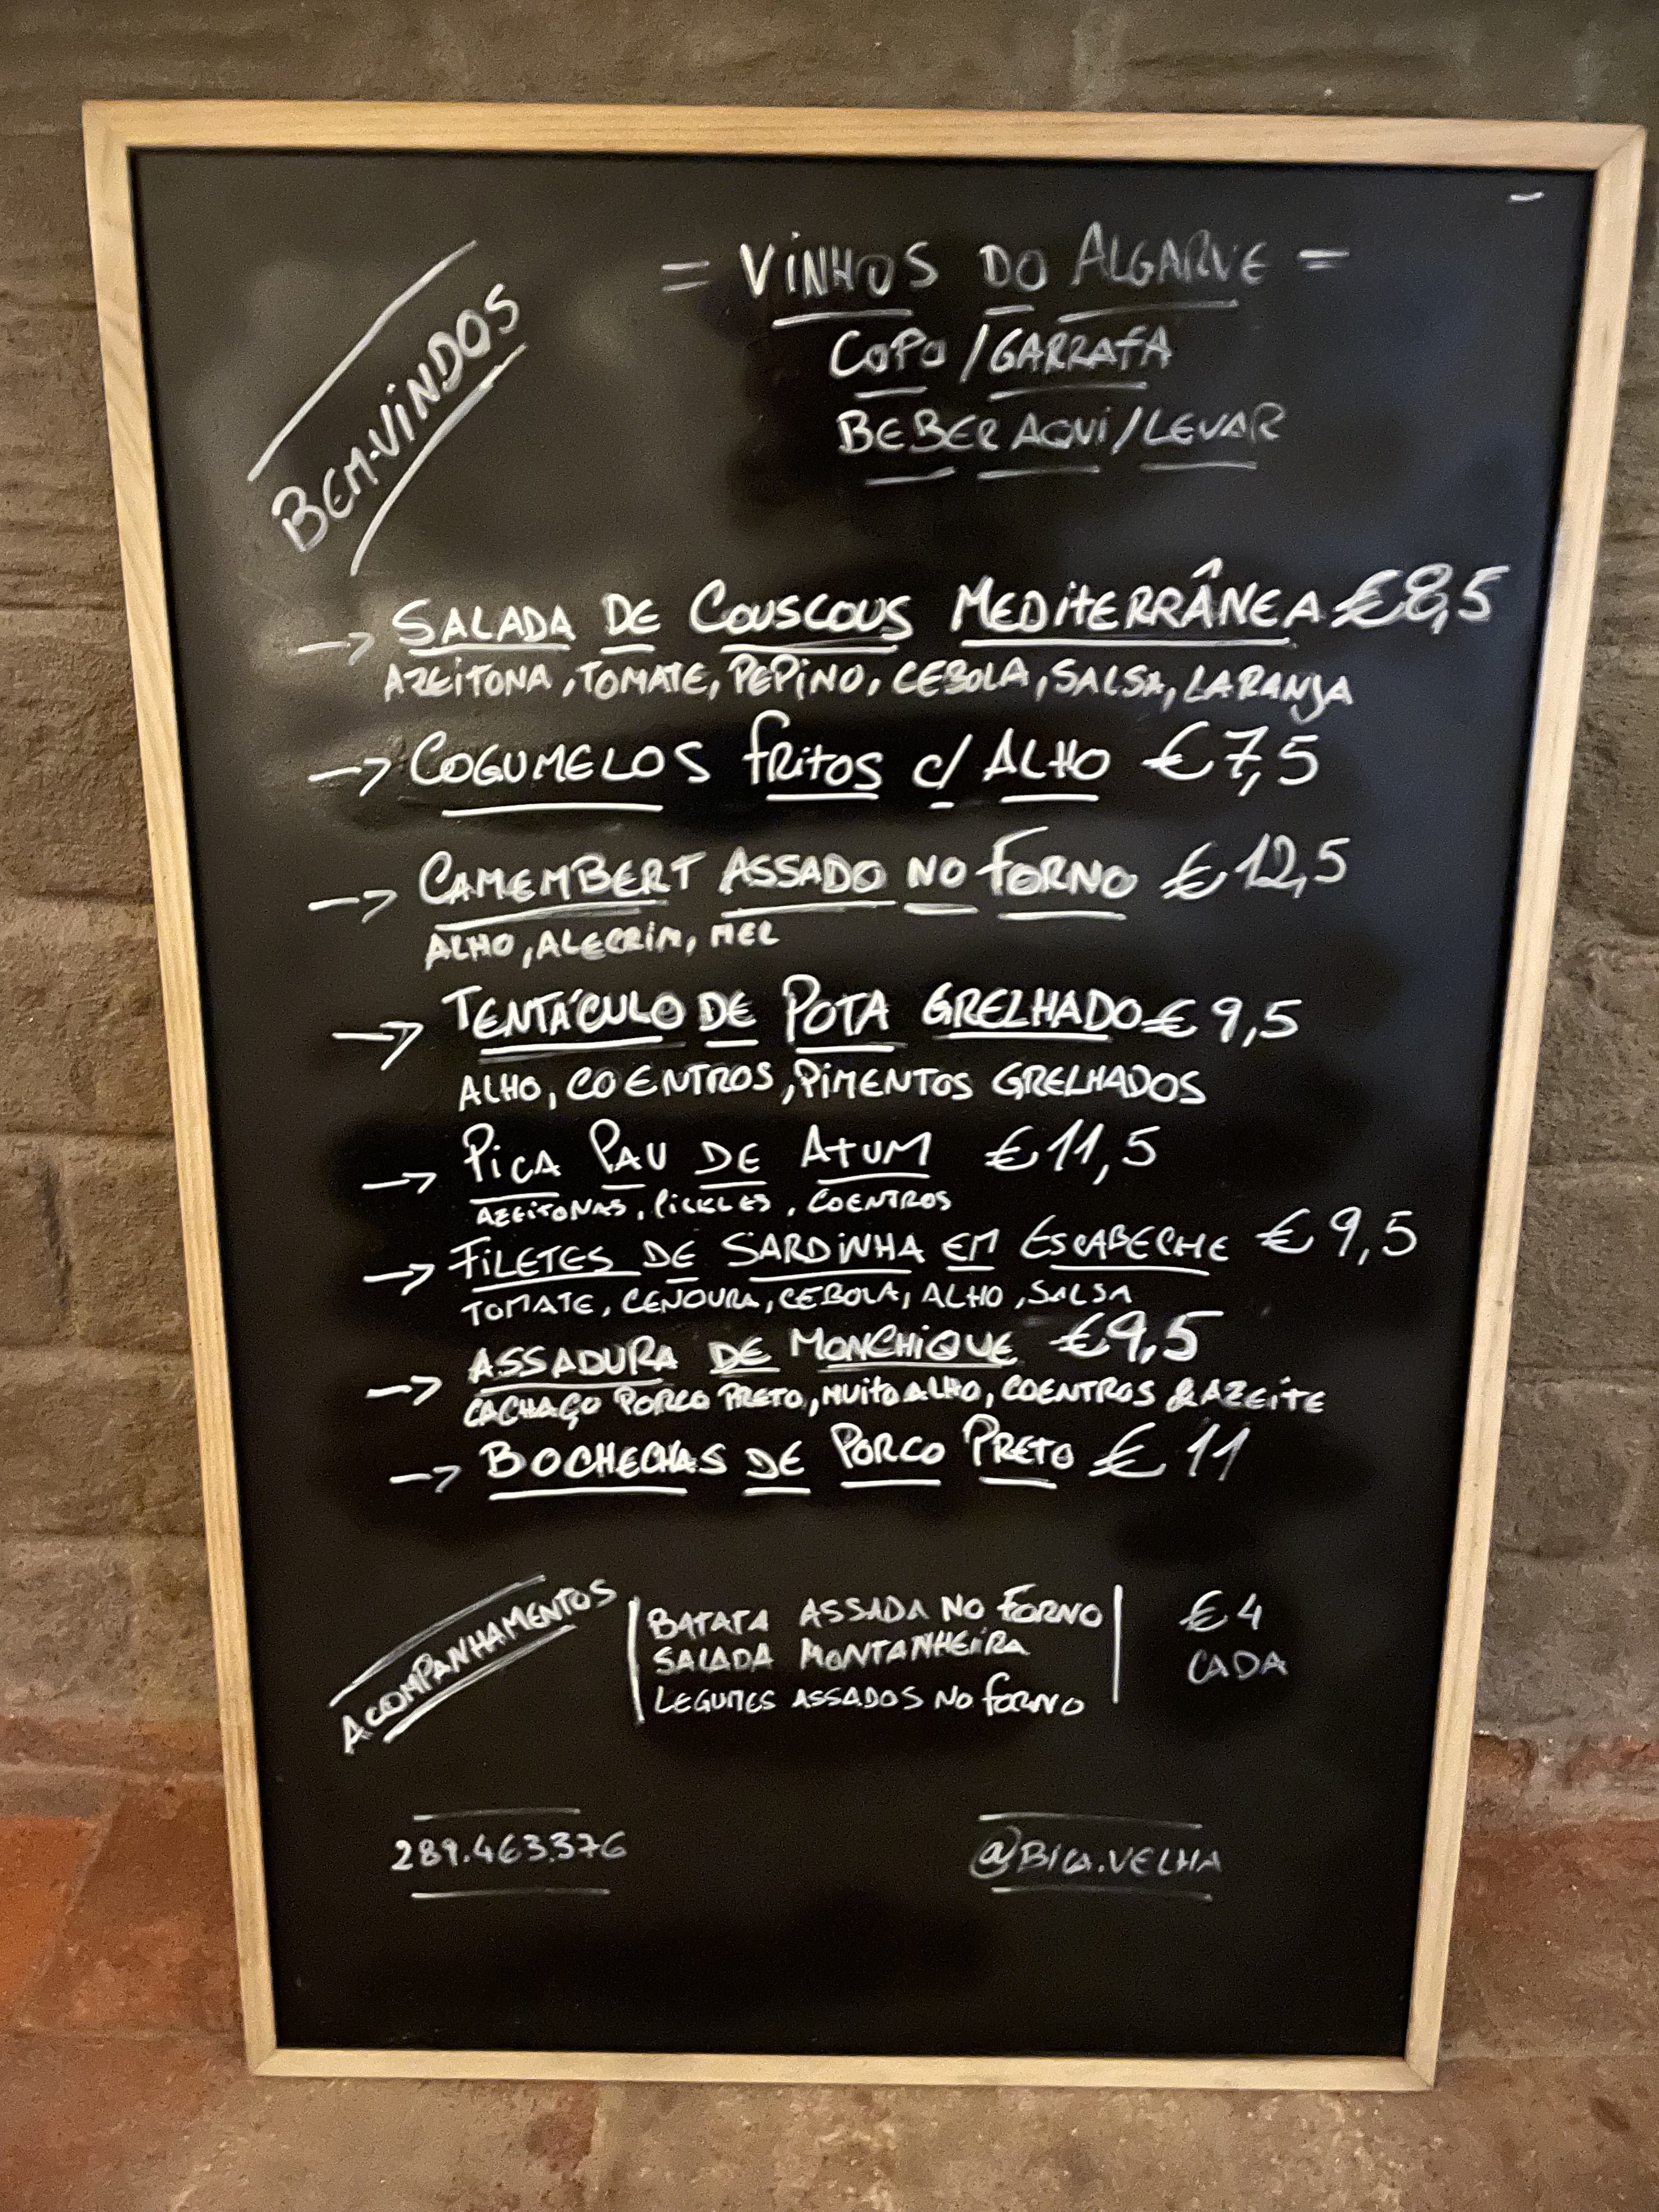 BEM-VINDOS
= VINHOS DO ALGARVE =
COPO/GARRAFA
BEBER AQUI/LEVAR
→ SALADA DE COUSCOUS MEDITERRÂNEA €8,5
AZEITONA, TOMATE, PEPINO, CEBOLA, SALSA, LARANJA
→ COGUMELOS FRITOS C/ ALHO €7,5
→ CAMEMBERT ASSADO NO FORNO €12,5
ALHO, ALECRIM, MEL
→ TENTÁCULO DE POTA GRELHADO €9,5
ALHO, COENTROS, PIMENTOS GRELHADOS
→ PICA PAU DE ATUM €11,5
AZEITONAS, PICKLES, COENTROS
→ FILETES DE SARDINHA EM ESCABECHE €9,5
TOMATE, CENOURA, CEBOLA, ALHO, SALSA
→ ASSADURA DE MONCHIQUE €9,5
CACHAÇO PORCO PRETO, MUITO ALHO, COENTROS & AZEITE
→ BOCHECHAS DE PORCO PRETO €11
ACOMPANHAMENTOS
BATATA ASSADA NO FORNO
SALADA MONTANHEIRA
LEGUMES ASSADOS NO FORNO
€4
CADA
289.463.376
@BICA.VELHA